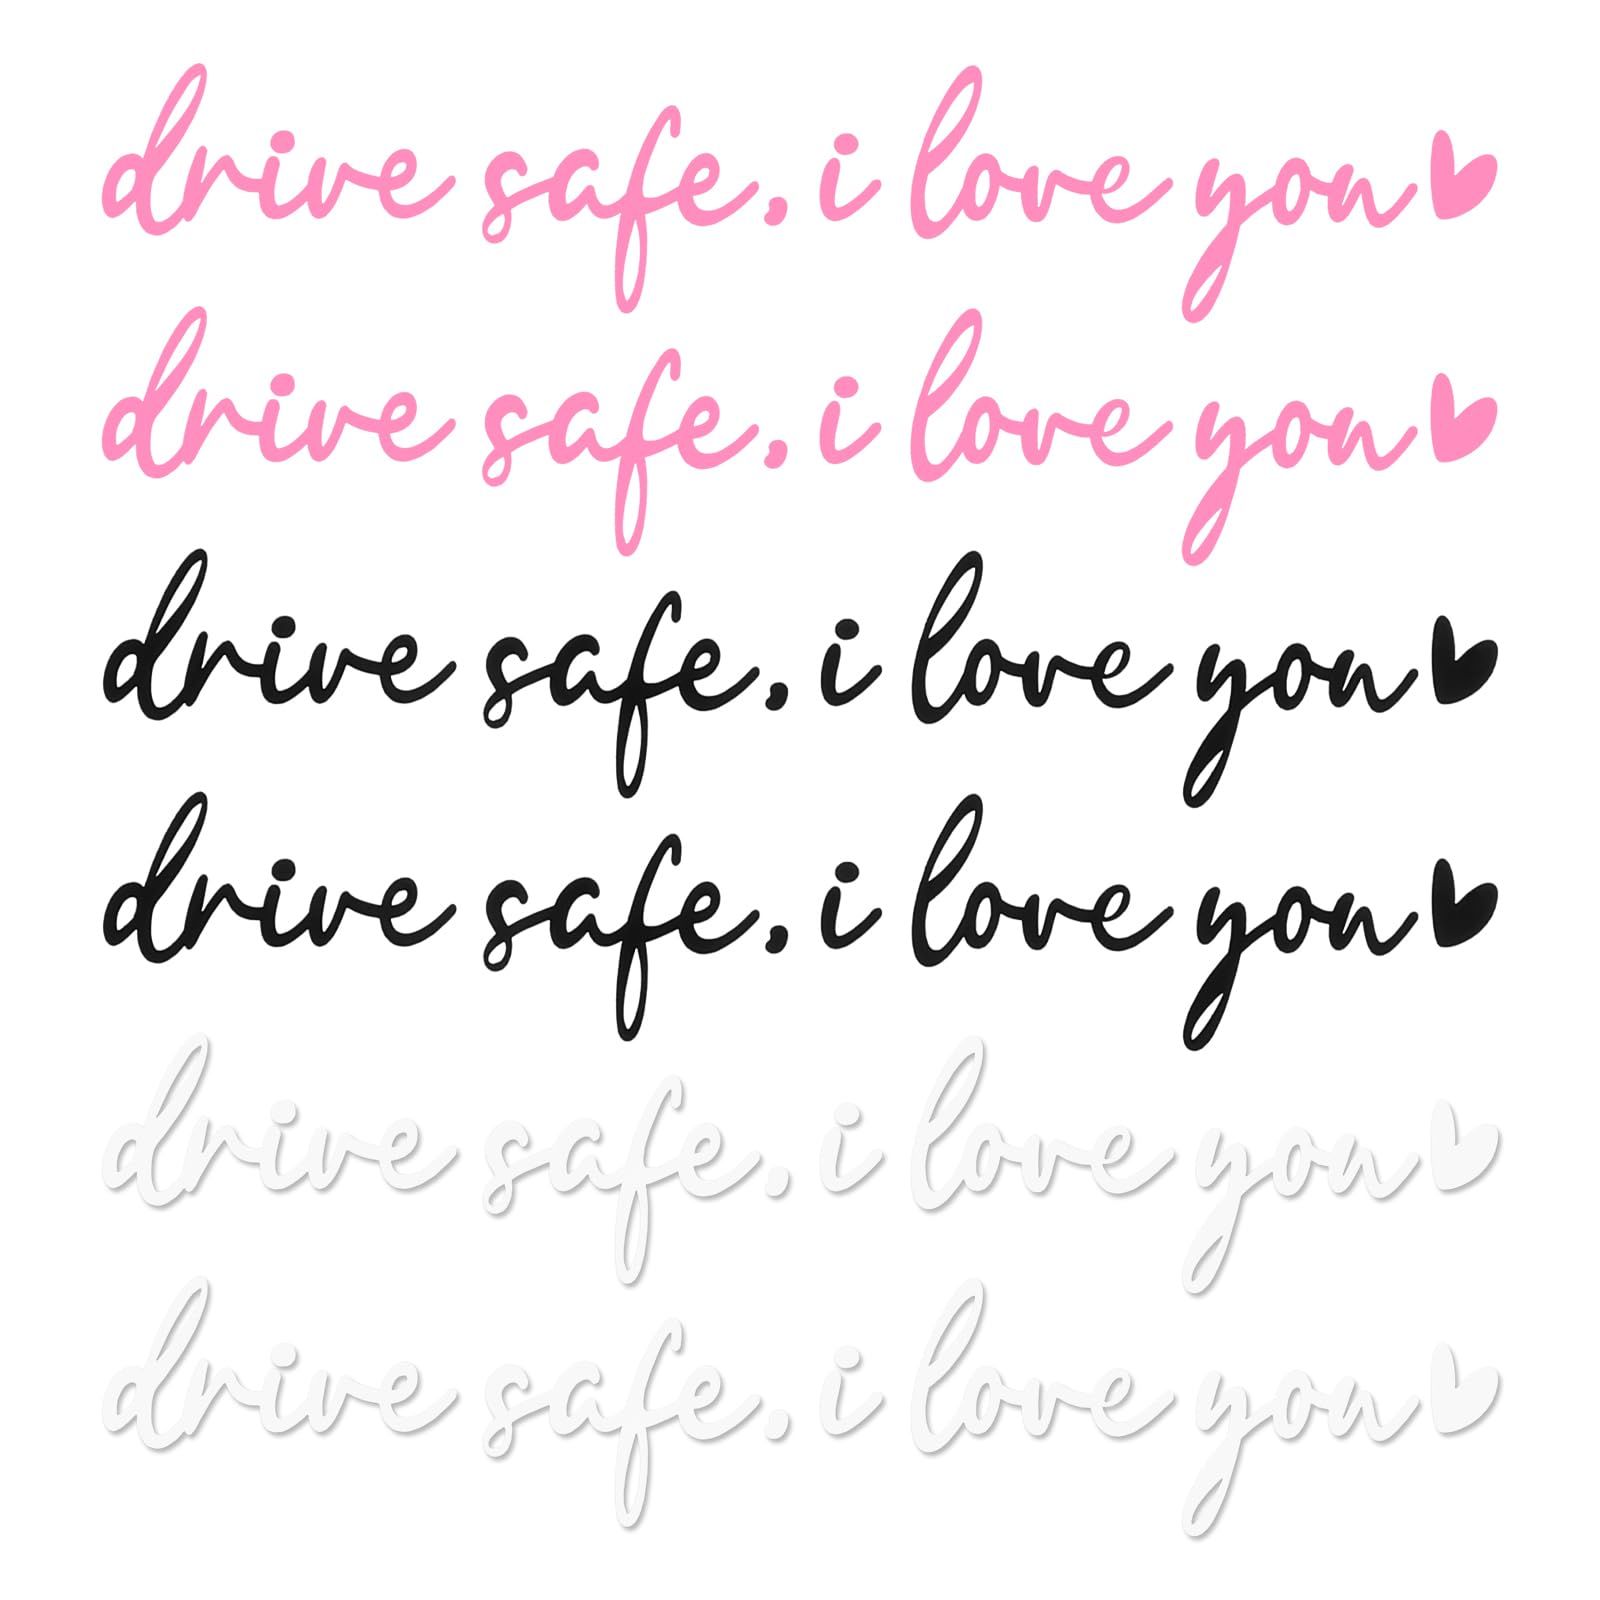 drive safe, i love you
drive safe, i love you
drive safe, i love you
drive safe, i love you
drive safe, i love you
drive safe, i love you